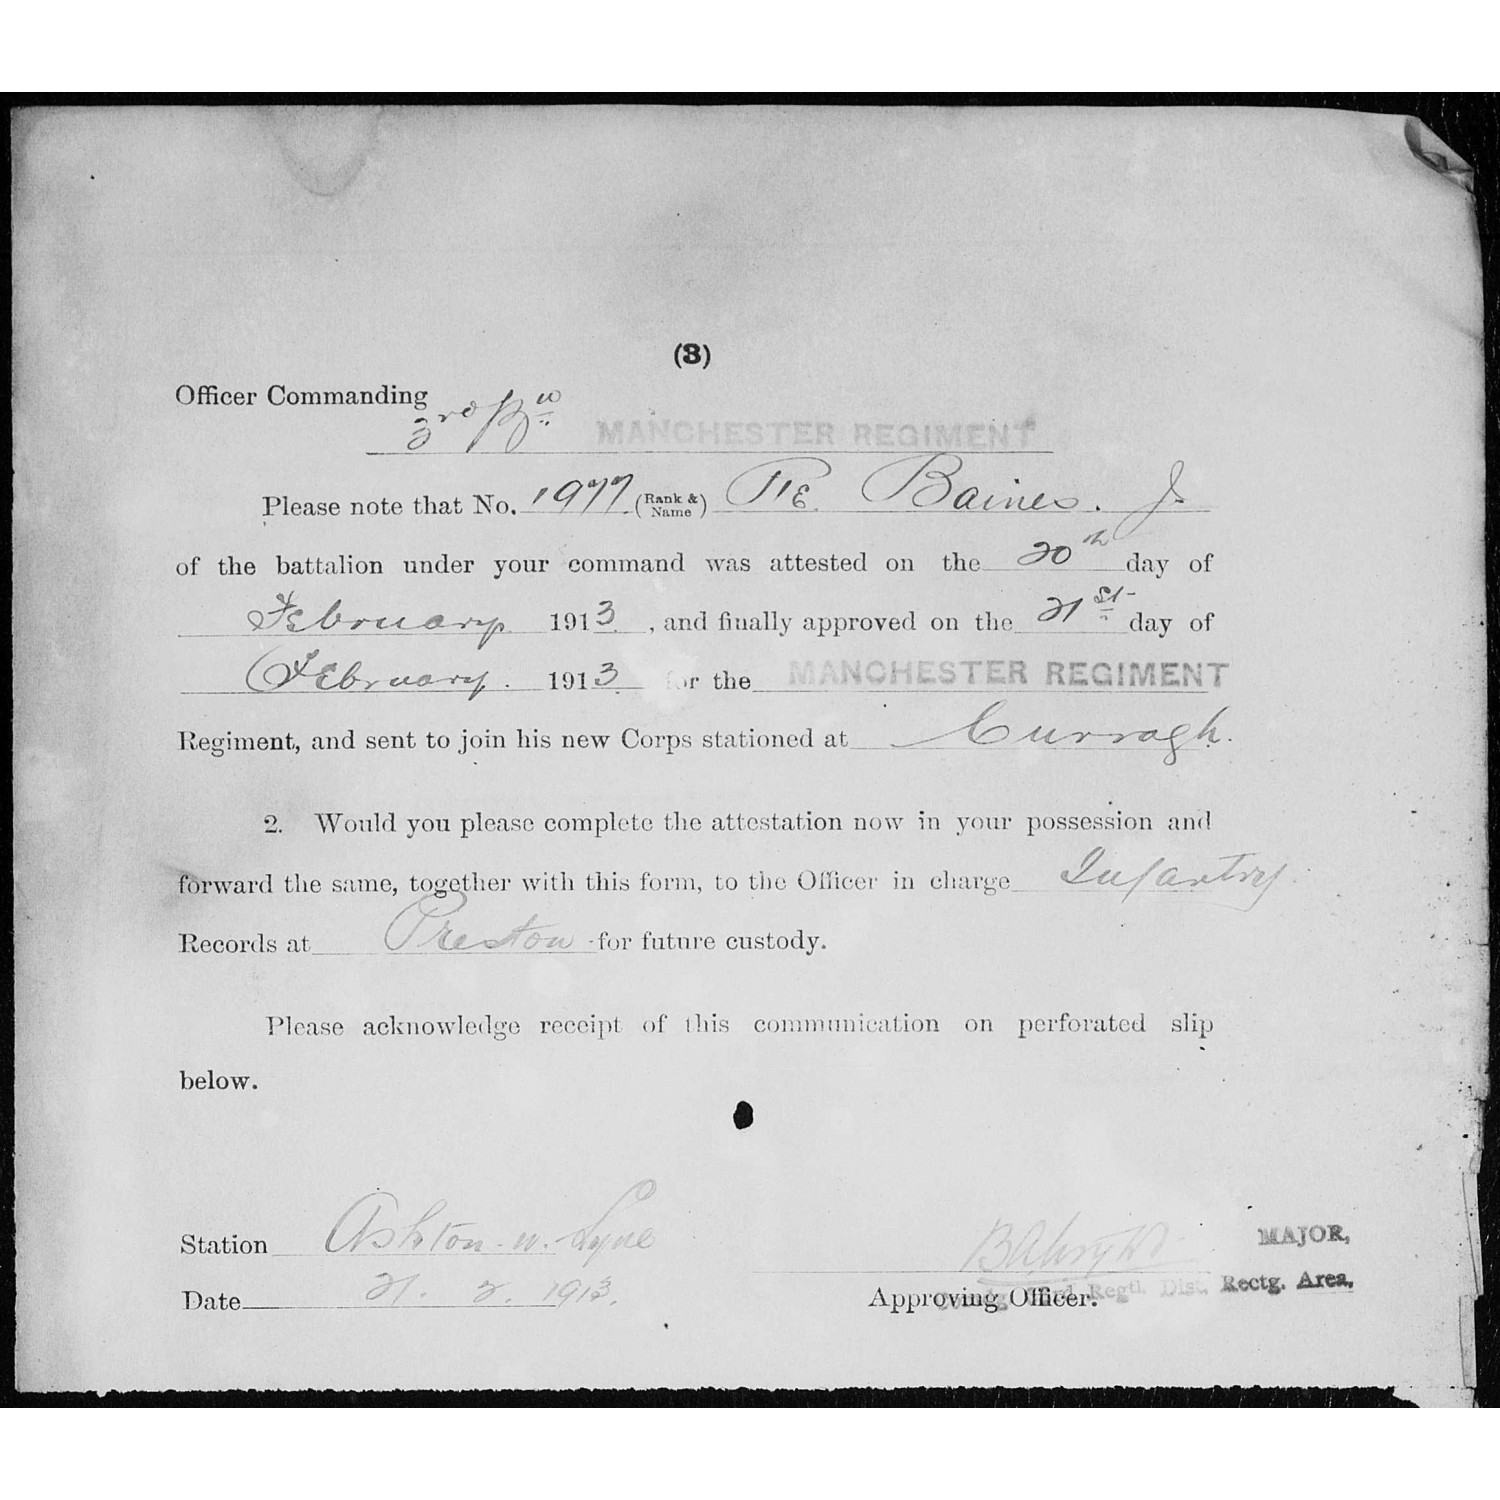 (3)
Officer Commanding
3rd Bn MANCHESTER REGIMENT
Please note that No. 1977 (Rank & Name) Pte Baines. J.
of the battalion under your command was attested on the 20th day of
February 1913, and finally approved on the 21st day of
February. 1913 for the MANCHESTER REGIMENT
Regiment, and sent to join his new Corps stationed at Curragh.
2. Would you please complete the attestation now in your possession and
forward the same, together with this form, to the Officer in charge Infantry
Records at Preston for future custody.
Please acknowledge receipt of this communication on perforated slip
below.
Station Ashton-u-Lyne
MAJOR,
Date 21. 2. 1913.
Approving Officer. Regtl. Dist. Rectg. Area.